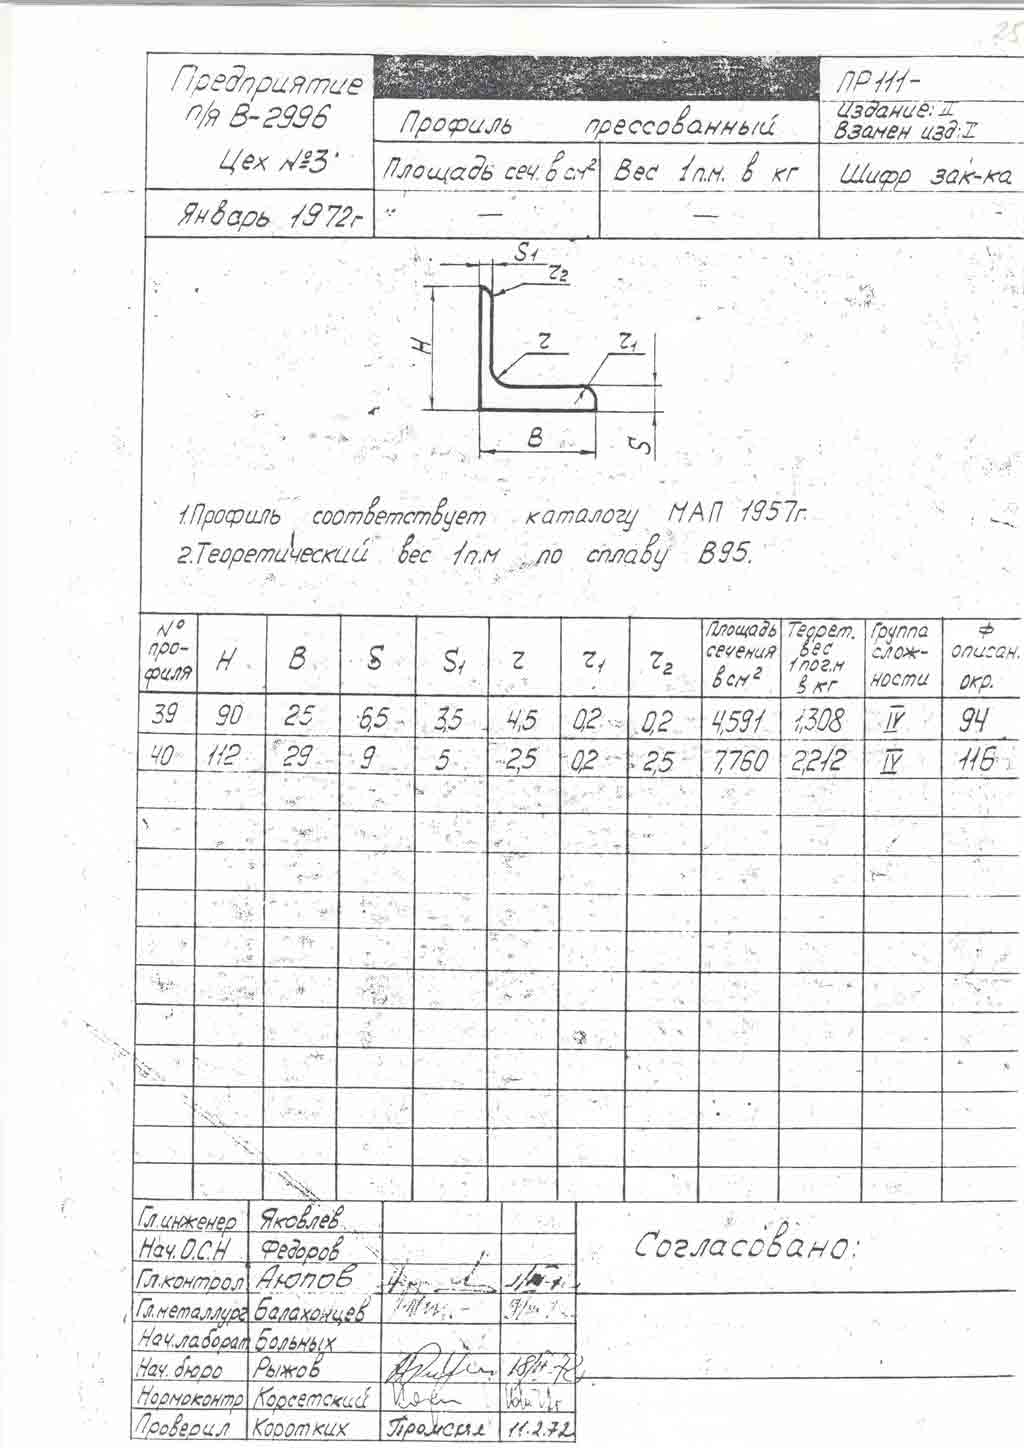 25
Предприятие
п/я В-2996
Цех №3
Январь 1972г
Профиль прессованный
Площадь сеч. в см²
Вес 1п.м. в кг
— —
ПР111-
Издание: II
Взамен изд: I
Шифр зак-ка
-
S1
τ2
H
τ
τ1
B
S
1.Профиль соответствует каталогу МАП 1957г.
2.Теоретический вес 1п.м по сплаву В95.
№ про-филя H B S S1 τ τ1 τ2 Площадь сечения в см² Теорет. вес 1пог.м в кг Группа слож-ности Ф описан. окр.
39 90 25 6,5 3,5 4,5 0,2 0,2 4,591 1,308 IV 94
40 112 29 9 5 2,5 0,2 2,5 7,760 2,212 IV 116
Гл.инженер Яковлев
Нач.О.С.Н Федоров
Гл.контрол Аюпов
Гл.металлург Балахонцев
Нач.лаборат Больных
Нач.бюро Рыжов
Нормоконтр Корсетский
Проверил Коротких 11.2.72
Согласовано: